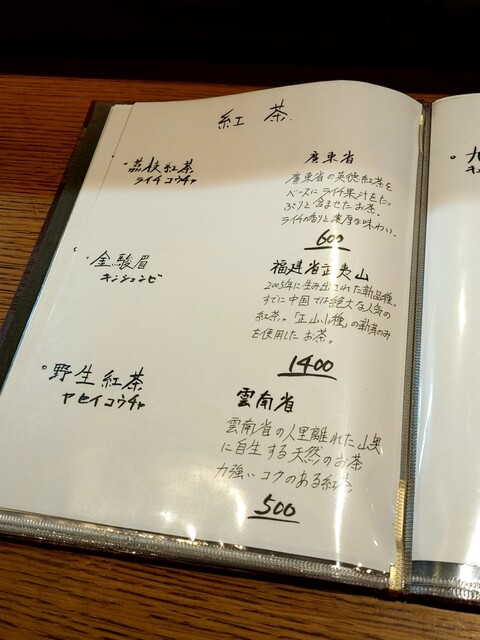 紅茶
荔枝紅茶
ライチコウチャ
廣東省
廣東省の英徳紅茶を
ベースにライチ果汁をたっ
ぷりと含ませたお茶。
ライチの香りと濃厚な味わい。
600
金駿眉
キンシュンビ
福建省武夷山
2005年に生み出された新品種。
すでに中国では絶大な人気の
紅茶。「正山小種」の新芽のみ
を使用したお茶。
1400
野生紅茶
ヤセイコウチャ
雲南省
雲南省の人里離れた山奥
に自生する天然のお茶
力強いコクのある紅茶
500